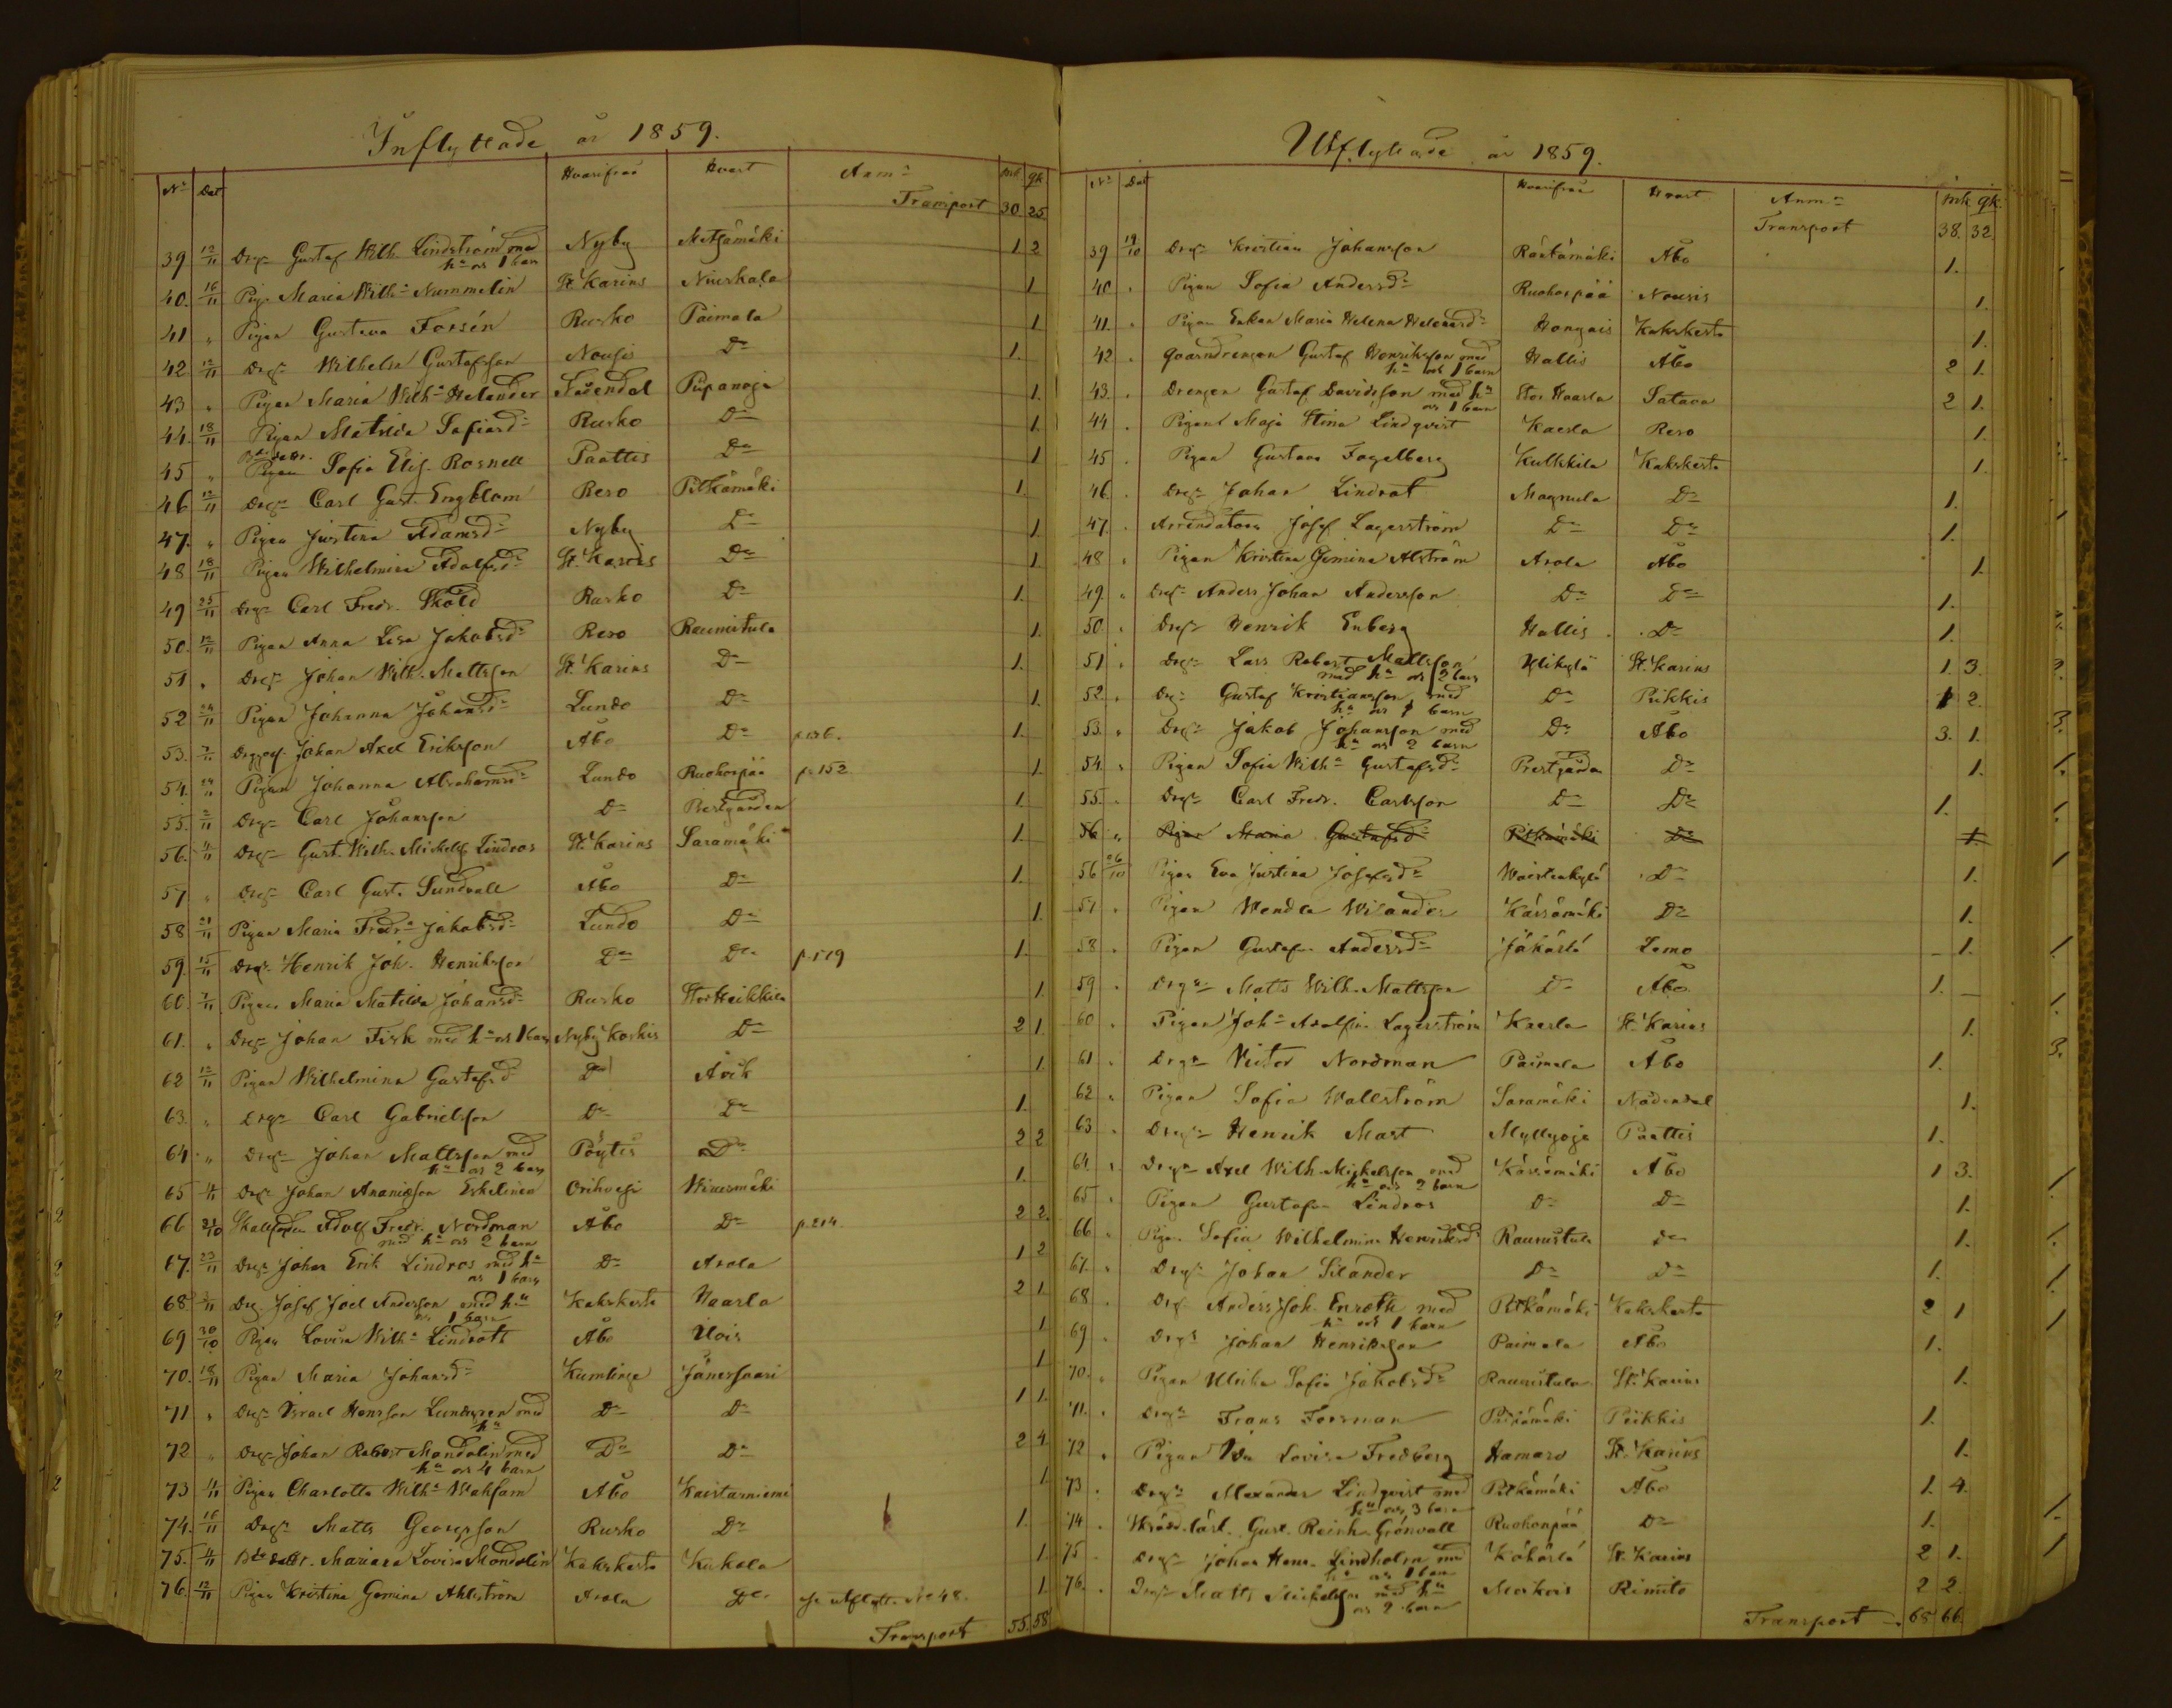 Inflyttade år 1859.
No Dat Hvarifrån Hvart Anm: mk qk
Transport 30 25
39 12/11 Drg: Gustaf Wilh. Lindström med Nyby Metsämäki 1 2
hu o 1 barn
40. 16/11 Pig. Maria Wilh:a Nummelin St. Karins Niuskala 1
41 " Pigan Gustava Forsén Rusko Paimala 1
42 12/11 Drg: Wilhelm Gustafsson Nousis Do 1.
43 " Pigan Maria Wilh:a Helander Nådendal Piipanoja 1.
44. 18/11 Pigan Matilda Safiasd:r Rusko Do 1.
45 " Pigan Sofia Elis. Rosnell Paattis Do 1
46 12/11 Drg: Carl Gust. Engblom Reso Pitkämäki 1.
47. " Pigan Justina Adamsd:r Nyby Do 1.
48 18/11 Pigan Wilhelmina Adolfsd:r St. Karins Do 1.
49 25/11 Drg: Carl Fredr. Sköld Rusko Do 1.
50. 12/11 Pigan Anna Lisa Jakobsd:r Reso Raunistula 1.
51 " Drg: Johan Wilh. Mattsson St. Karins Do 1.
52 24/11 Pigan Johanna Johansd:r Lundo Do 1.
53. Johan Axel Eriksson Åbo Do p. 136. 1.
54. 24/11 Pigan Johanna Abrahamsd:r Lundo Ruohonpää p. 152 1.
55. 2/11 Drg: Carl Johansson Do Prestgården 1.
56. 4/11 Drg: Gust. Wilh. Mickels. Lindros St. Karins Saramäki 1.
57 " Drg: Carl Gust. Sundvall Åbo Do 1.
58 21/11 Pigan Maria Fredr:a Jakobsd:r Lundo Do 1.
59. 15/11 Drg: Henrik Joh. Henriksson Do Do p. 179 1.
60. 7/11 Pigan Maria Matilda Johansd:r Rusko Stor Heikkilä 1.
61. " Drg: Johan Fisk med hu o 1 barn Nyby Koskis Do 2 1.
62 12/11 Pigan Wilhelmina Gustafsd Do Avik 1.
63. " Drg: Carl Gabrielsson Do Do 1.
64. " Drg: Johan Mattsson med Pöytis Do 2 2
hu o 2 barn
65 4/11 Drg: Johan Ananiasson Eskelinen Orihvesi Wiinamäki 1.
66 21/10 Adolf Fredr. Nordman Åbo Do p. 214. 2 2.
med hu o 2 barn
67. 23/11 Drg: Johan Erik Lindros med hu Do Arola 1 2
o 1 barn
68 Drg. Josef Joel Andersson med hu Kakskerta Haarla 2 1.
o 1 barn
69 30/10 Pigan Lovisa Wilh:a Lindroth Åbo Ilois 1
70. 18/11 Pigan Maria Johansd:r Kumlinge Jänessaari 1
71 " Drg: Israel Hansson Lundgren med Do Do 1 1.
hu
72 " Drg: Johan Robert Mondolin med Do Do 2 4.
hu o 4 barn
73 4/11 Pigan Charlotta Wilh:a Wahlsam Åbo Kaistarniemi 1
74. 16/11 Drg: Matts Georgsson Rusko Do 1.
75. 4/11 Mariana Lovisa Mondolin Kakskerta Kukola 1.
76. 12/11 Pigan Kristina Gemina Ahlström Arola Do se utflytt. No 48. 1.
Transport 55. 58
Utflyttade år 1859.
No Dat Hvarifrån Hvart Anm: mk qk.
Transport 38. 32.
39 19/10 Drg: Kristian Johansson Räntämäki Åbo 1.
40 " Pigan Sofia Andersd:r Ruohonpää Nousis 1.
41. " Pigan Enkan Maria Helena Helenasd:r Hongais Kakskerta 1.
42 " Gaardrengen Gustaf Henriksson med Hallis Åbo 2 1.
hu o 1 barn
43. " Drengen Gustaf Davidsson med hu Stor Haarla Satava 2 1.
o 1 barn
44 " Pigan Maja Stina Lindqvist Kaerla Reso 1.
45 " Pigan Gustava Fagelberg Kulkkila Kakskerta 1.
46. " Drg: Johan Lindrot Magnula Do 1.
47. " Arrendatorn Josef Lagerström Do Do 1.
48 " Pigan Kristina Gemina Alström Arola Åbo 1.
49. " Drg: Anders Johan Andersson Do Do 1.
50. " Drg: Henrik Enberg Hallis Do 1.
51 " Drg: Lars Robert Mattsson Ylikylä St. Karins 1. 3.
med hu o 2 barn
52. " Dr: Gustaf Kristiansson med Do Piikkis 1 2.
hu o 1 barn
53. " Drg: Jakob Johansson med Do Åbo 3. 1.
hu o 2 barn
54. " Pigan Sofia Wilh:a Gustafsd:r Prestgården Do 1.
55. " Drg: Carl Fredr. Carlsson Do Do 1.
56 " Pigan Maria Gustafsd Pitkämäki Do 1.
56 26/10 Pigan Eva Justina Josefsd:r Waistenkylä Do 1.
57 " Pigan Wendla Wilander Kärsämäki Do 1.
58 " Pigan Gustafva Andersd:r Jäkärlä Lemo – 1.
59 " Drg: Mats Wilh. Mattsson Do Åbo 1. –
60 " Pigan Joh:a Adolfina Lagerström Kaerla St. Karins 1.
61 " Drg: Victor Nordman Paimala Åbo 1.
62 " Pigan Sofia Wallström Saramäki Nådendal 1.
63 " Drg: Henrik Mart Myllyoja Paattis 1.
64. " Drg: Axel Wilh. Mickelsson med Kärsämäki Åbo 1 3.
hu o 2 barn
65 " Pigan Gustafva Lindros Do Do 1.
66 " Pigan Sofia Wilhelmina Henriksd Raunistula Do 1.
67. " Drg: Johan Silander Do Do 1.
68 " Drg Anders Joh. Enroth med Pitkämäki Kakskerta 2 1
hu o 1 barn
69 " Drg: Johan Henriksson Paimala Åbo 1.
70. " Pigan Ulrika Sofia Jakobsd:r Raunistula St. Karins 1.
71. " Drg: Frans Forsman Pitkämäki Piikkis 1.
72 " Pigan Ida Lovisa Fredberg Hamaro St. Karins 1.
73 " Drg: Alexander Lindqvist med Pitkämäki Åbo 1. 4.
hu o 3 barn
74 " Skrädd. lärl. Gust. Reinh. Grönvall Ruohonpää Do 1.
75 " Drg: Johan Henr. Lindholm med Kähärlä St. Karins 2 1.
hu o 1 barn
76. " Drg: Matts Mickelsson med hu Moikois Rimito 2 2.
o 2 barn
Transport 68 66.